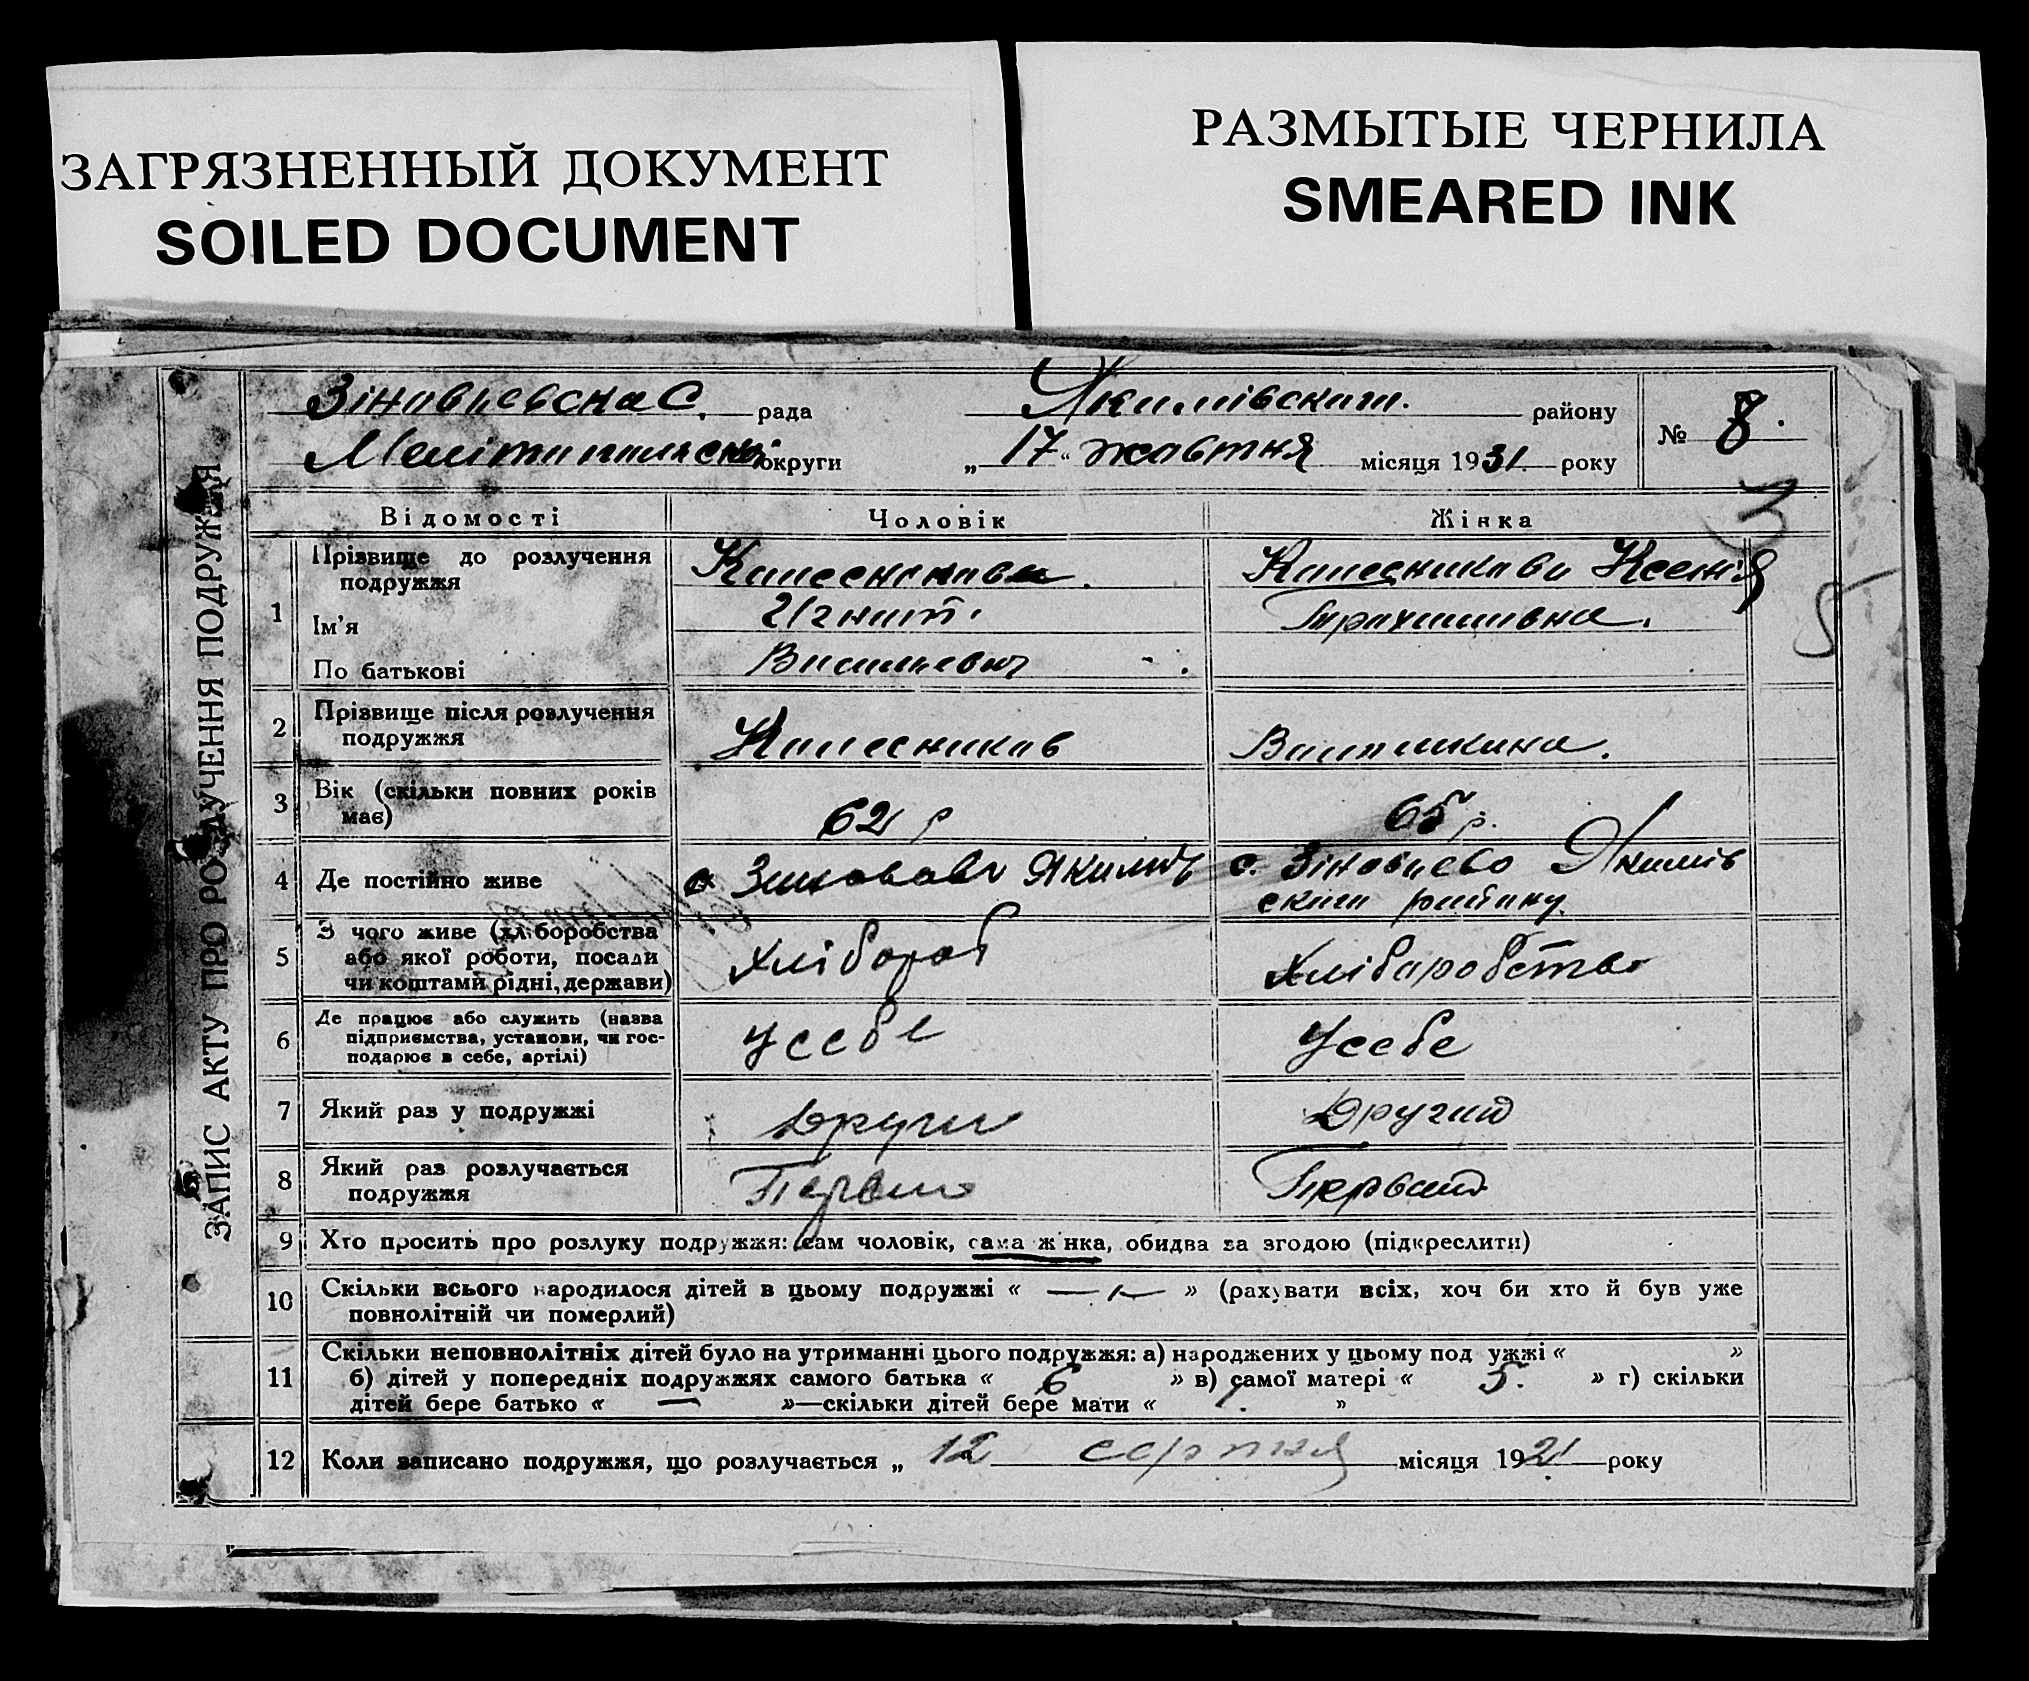 ЗАГРЯЗНЕННЫЙ ДОКУМЕНТ
SOILED DOCUMENT
РАЗМЫТЫЕ ЧЕРНИЛА
SMEARED INK
ЗАПИС АКТУ ПРО РОЗЛУЧЕННЯ ПОДРУЖЖЯ
рада Якимівского району № 8.
округи „17“ жовтня місяця 1931 року
Відомості Чоловік Жінка
1 Прізвище до розлучення Колесникова Ксенія
подружжя
Ім'я Ігнат.
По батькові Васильевич
2 Прізвище після розлучення
подружжя Колесников
3 Вік (скільки повних років
має) 62 р 65 р.
4 Де постійно живе Якимів с. Зіновіево Якимів
ского району
5 З чого живе (хліборобства
або якої роботи, посади Хлібороб Хліборобство
чи коштами рідні, держави)
6 Де працює або служить (назва
підприємства, установи, чи гос- У себе У себе
подарює в себе, артілі)
7 Який раз у подружжі Други Другий
8 Який раз розлучається Первий Первый
подружжя
9 Хто просить про розлуку подружжя: сам чоловік, сама жінка, обидва за згодою (підкреслити)
10 Скільки всього народилося дітей в цьому подружжі « — » (рахувати всіх, хоч би хто й був уже
повнолітній чи померлий)
11 Скільки неповнолітніх дітей було на утриманні цього подружжя: а) народжених у цьому подружжі « »
б) дітей у попередніх подружжях самого батька « 6 » в) самої матері « 5. » г) скільки
дітей бере батько « — »—скільки дітей бере мати « »
12 Коли записано подружжя, що розлучається „ 12 серпня місяця 1921 року